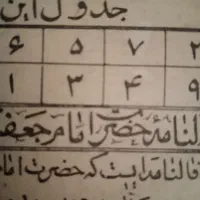 جدول این
۶ ۵ ۷ ۲
۱ ۳ ۴ ۹
النامهٔ حضرت امام جعف
فالنامه اینست که حضرت اما